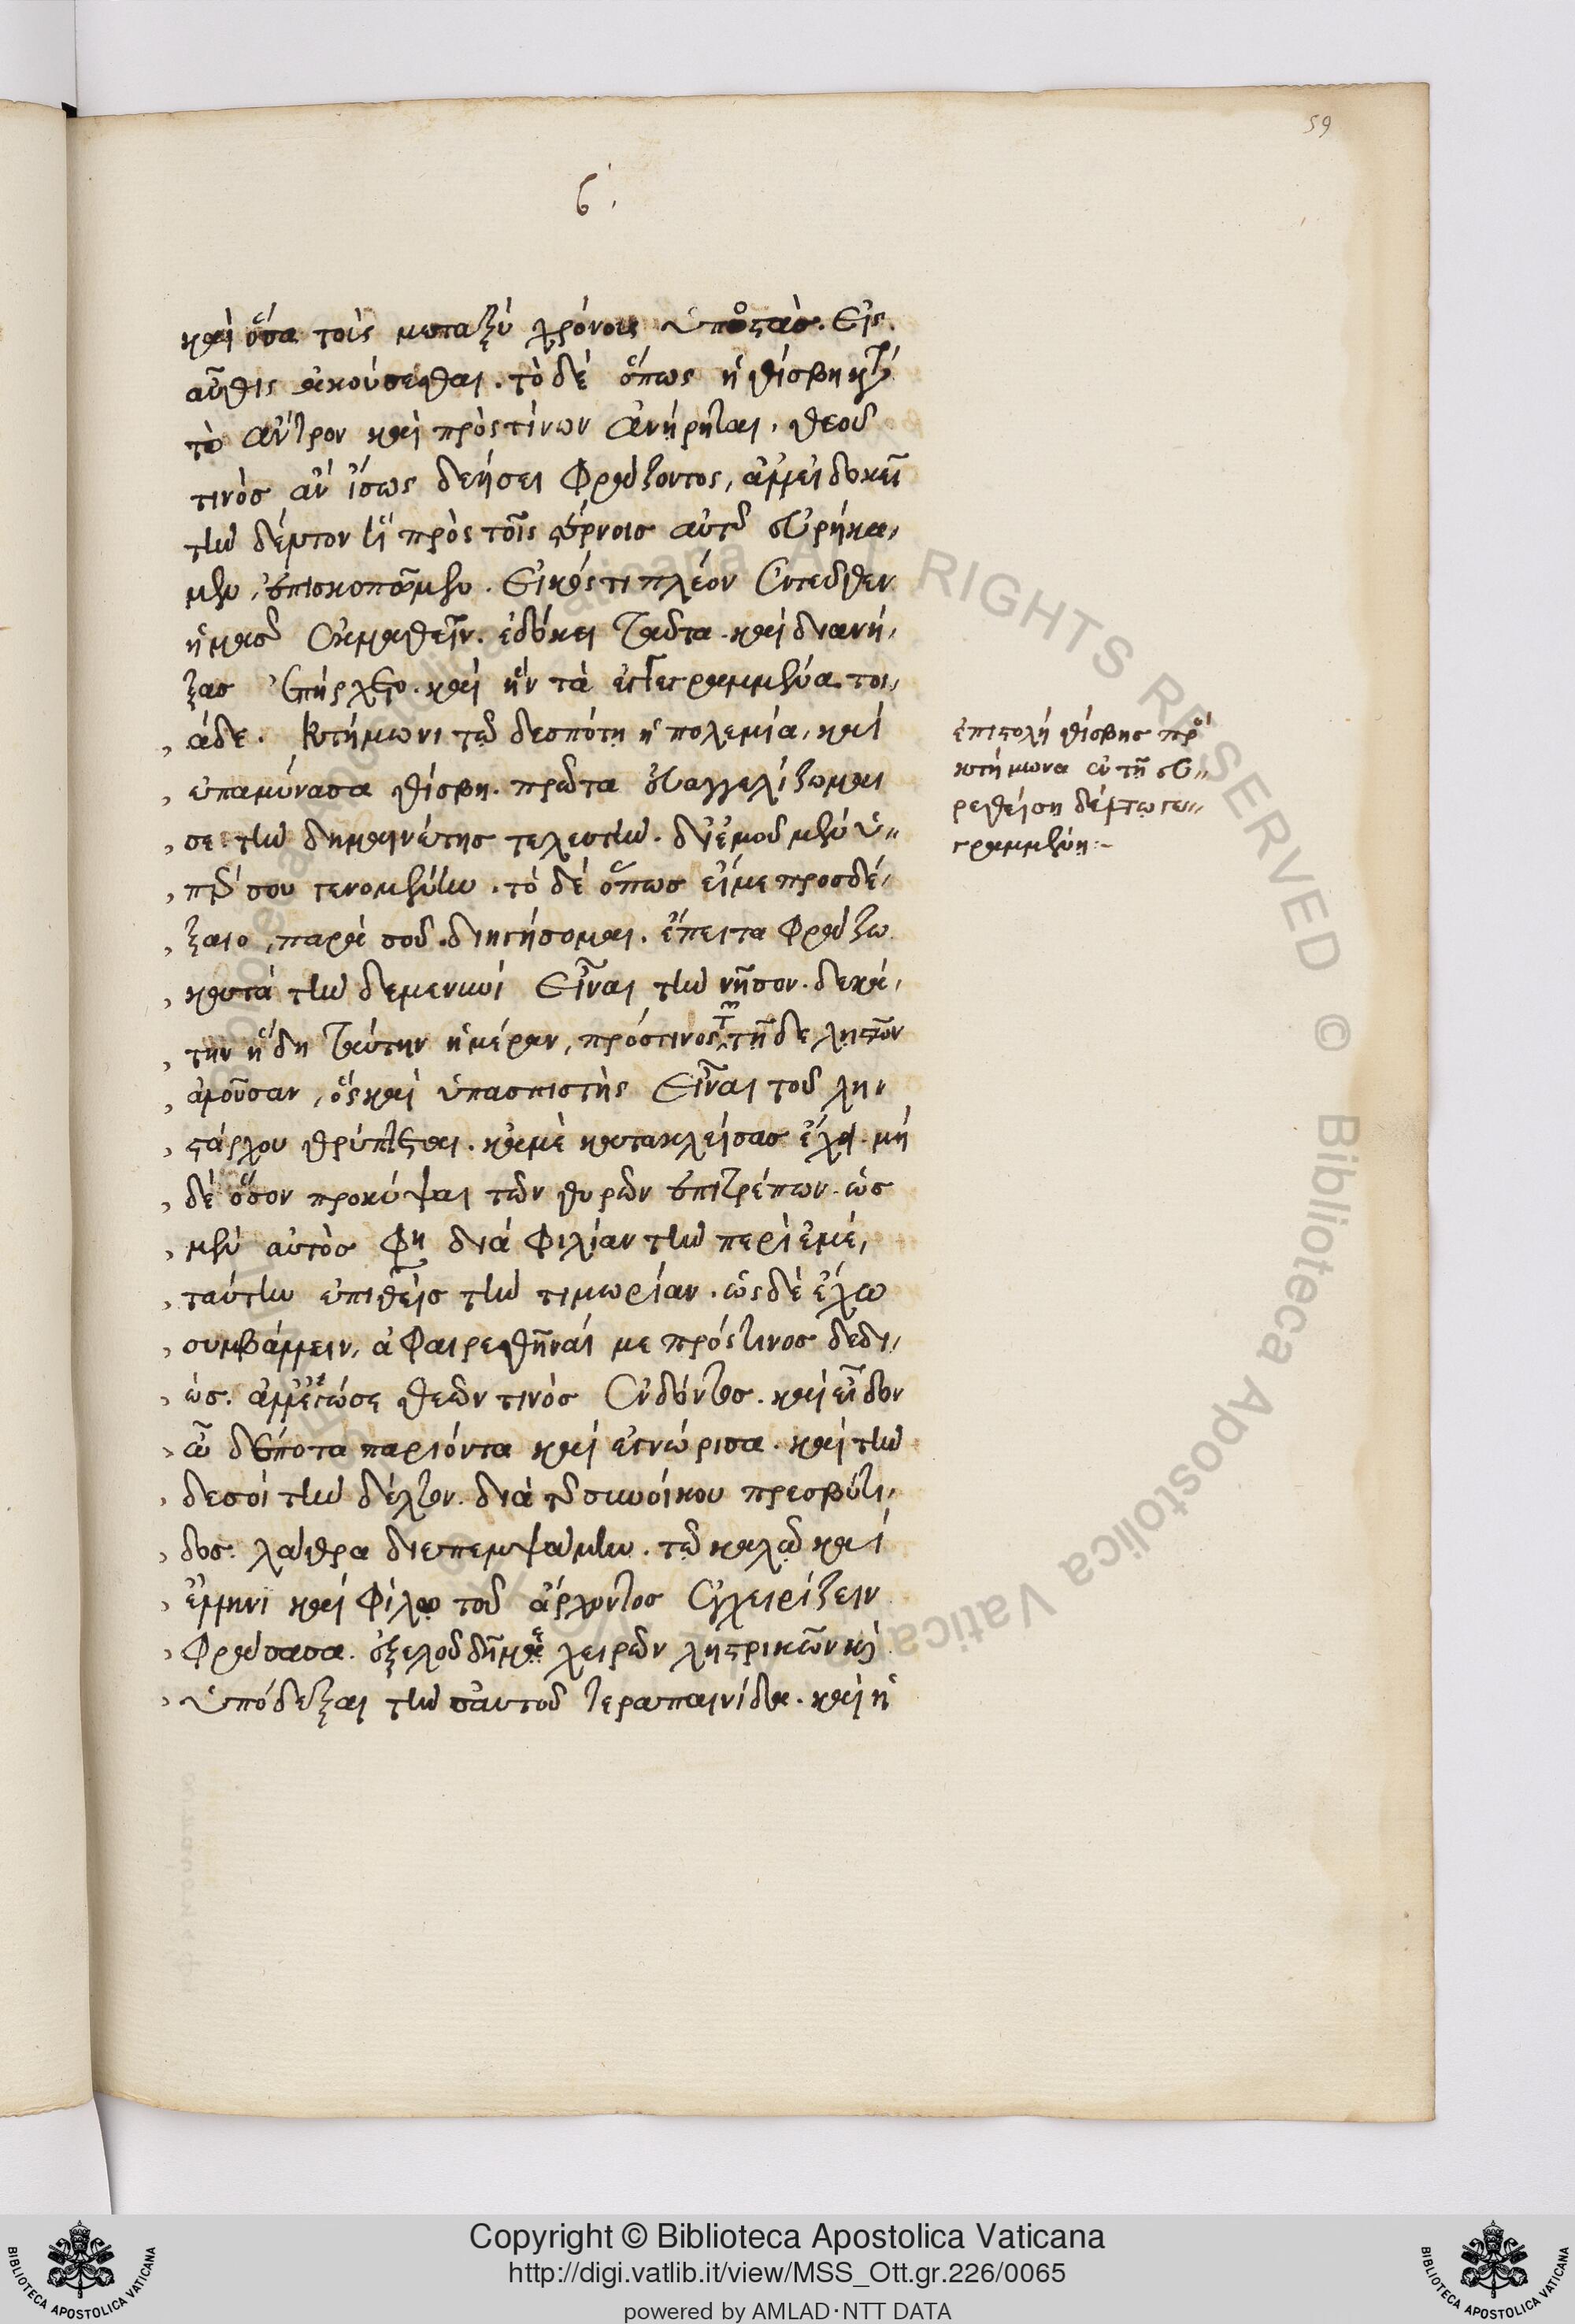 59
β'.
καὶ ὅσα τοῖς μεταξὺ χρόνοις ὑποστὰσ. εἰς
αὖθις ἀκούσεσθαι. τὸ δὲ ὅπως ἡ θίσβη κατὰ
τὸ ἄντρον καὶ πρὸς τίνων ἀνήρηται, θεοῦ
τινὸσ ἂν ἴσως δεήσει φράζοντος, ἀλλ' εἰ δοκεῖ
τὴν δέλτον ἣν πρὸς τοῖς στέρνοισ αὐτῆς εὑρήκα-
μεν, ἐπισκοπῶμεν. εἰκός τι πλέον ἐντεῦθεν
ἡμᾶς ἐκμαθεῖν. ἐδόκει ταῦτα. καὶ διανοί-
ξασ ἐπήρχετο. καὶ ἦν τὰ ἐγγεγραμμένα τοι-
άδε. κτήμωνι τῷ δεσπότῃ ἡ πολεμία, καὶ
ἐπαμύνασα θίσβη. πρῶτα εὐαγγελίζομαι
σε τὴν δημαινέτησ τελευτὴν. δι' ἐμοῦ μὲν ὑ-
πέρ σου γενομένην. τὸ δὲ ὅπωσ εἴ με προσδέ-
ξαιο, παρὰ σοῦ διηγήσομαι. ἔπειτα φράζω
κατὰ τὴν δεμενκοὶ εἶναι τὴν νῆσον. δεκά-
την ἤδη ταύτην ἡμέραν, πρόστινος τῶν τῇδε λῃστῶν
ἁλοῦσαν, ὃς καὶ ὑπασπιστὴς εἶναι τοῦ λῃ-
στάρχου θρύπτεται. κἀμὲ κατακλείσασ ἔχει. μὴ
δὲ ὅσον προκύψαι τῶν θυρῶν ἐπιτρέπων. ὡσ
μὲν αὐτὸσ φησὶ διὰ φιλίαν τὴν περὶ ἐμέ,
ταύτην ἐπιθεὶσ τὴν τιμωρίαν. ὡς δὲ ἔχω
συμβάλλειν, ἀφαιρεθῆναί με πρόστινοσ δεδι-
ώσ. ἀλλ' ἔγωγέ σε θεῶν τινὸσ ἐνδόντοσ. καὶ εἶδον
ὦ δέσποτα παριόντα καὶ ἐγνώρισα. καὶ τήν
δεσοί τὴν δέλτον. διὰ τῆς συνοίκου πρεσβύτι-
δοσ. λάθρα διεπεμψάμην. τῷ καλῷ καὶ
ἕλληνι καὶ φίλῳ τοῦ ἄρχοντοσ ἐγχειρίζειν
φράσασα. ἐξελοῦ δή με χειρῶν λῃστρικῶν καὶ
ὑπόδεξαι τὴν σαυτοῦ θεραπαινίδα. καὶ εἰ
ἐπιστολὴ θίσβησ πρὸς
κτήμωνα ἐν τῇ εὑ-
ρεθείσῃ δέλτῳ γε-
γραμμένη:-
Copyright © Biblioteca Apostolica Vaticana
http://digi.vatlib.it/view/MSS_Ott.gr.226/0065
powered by AMLAD·NTT DATA